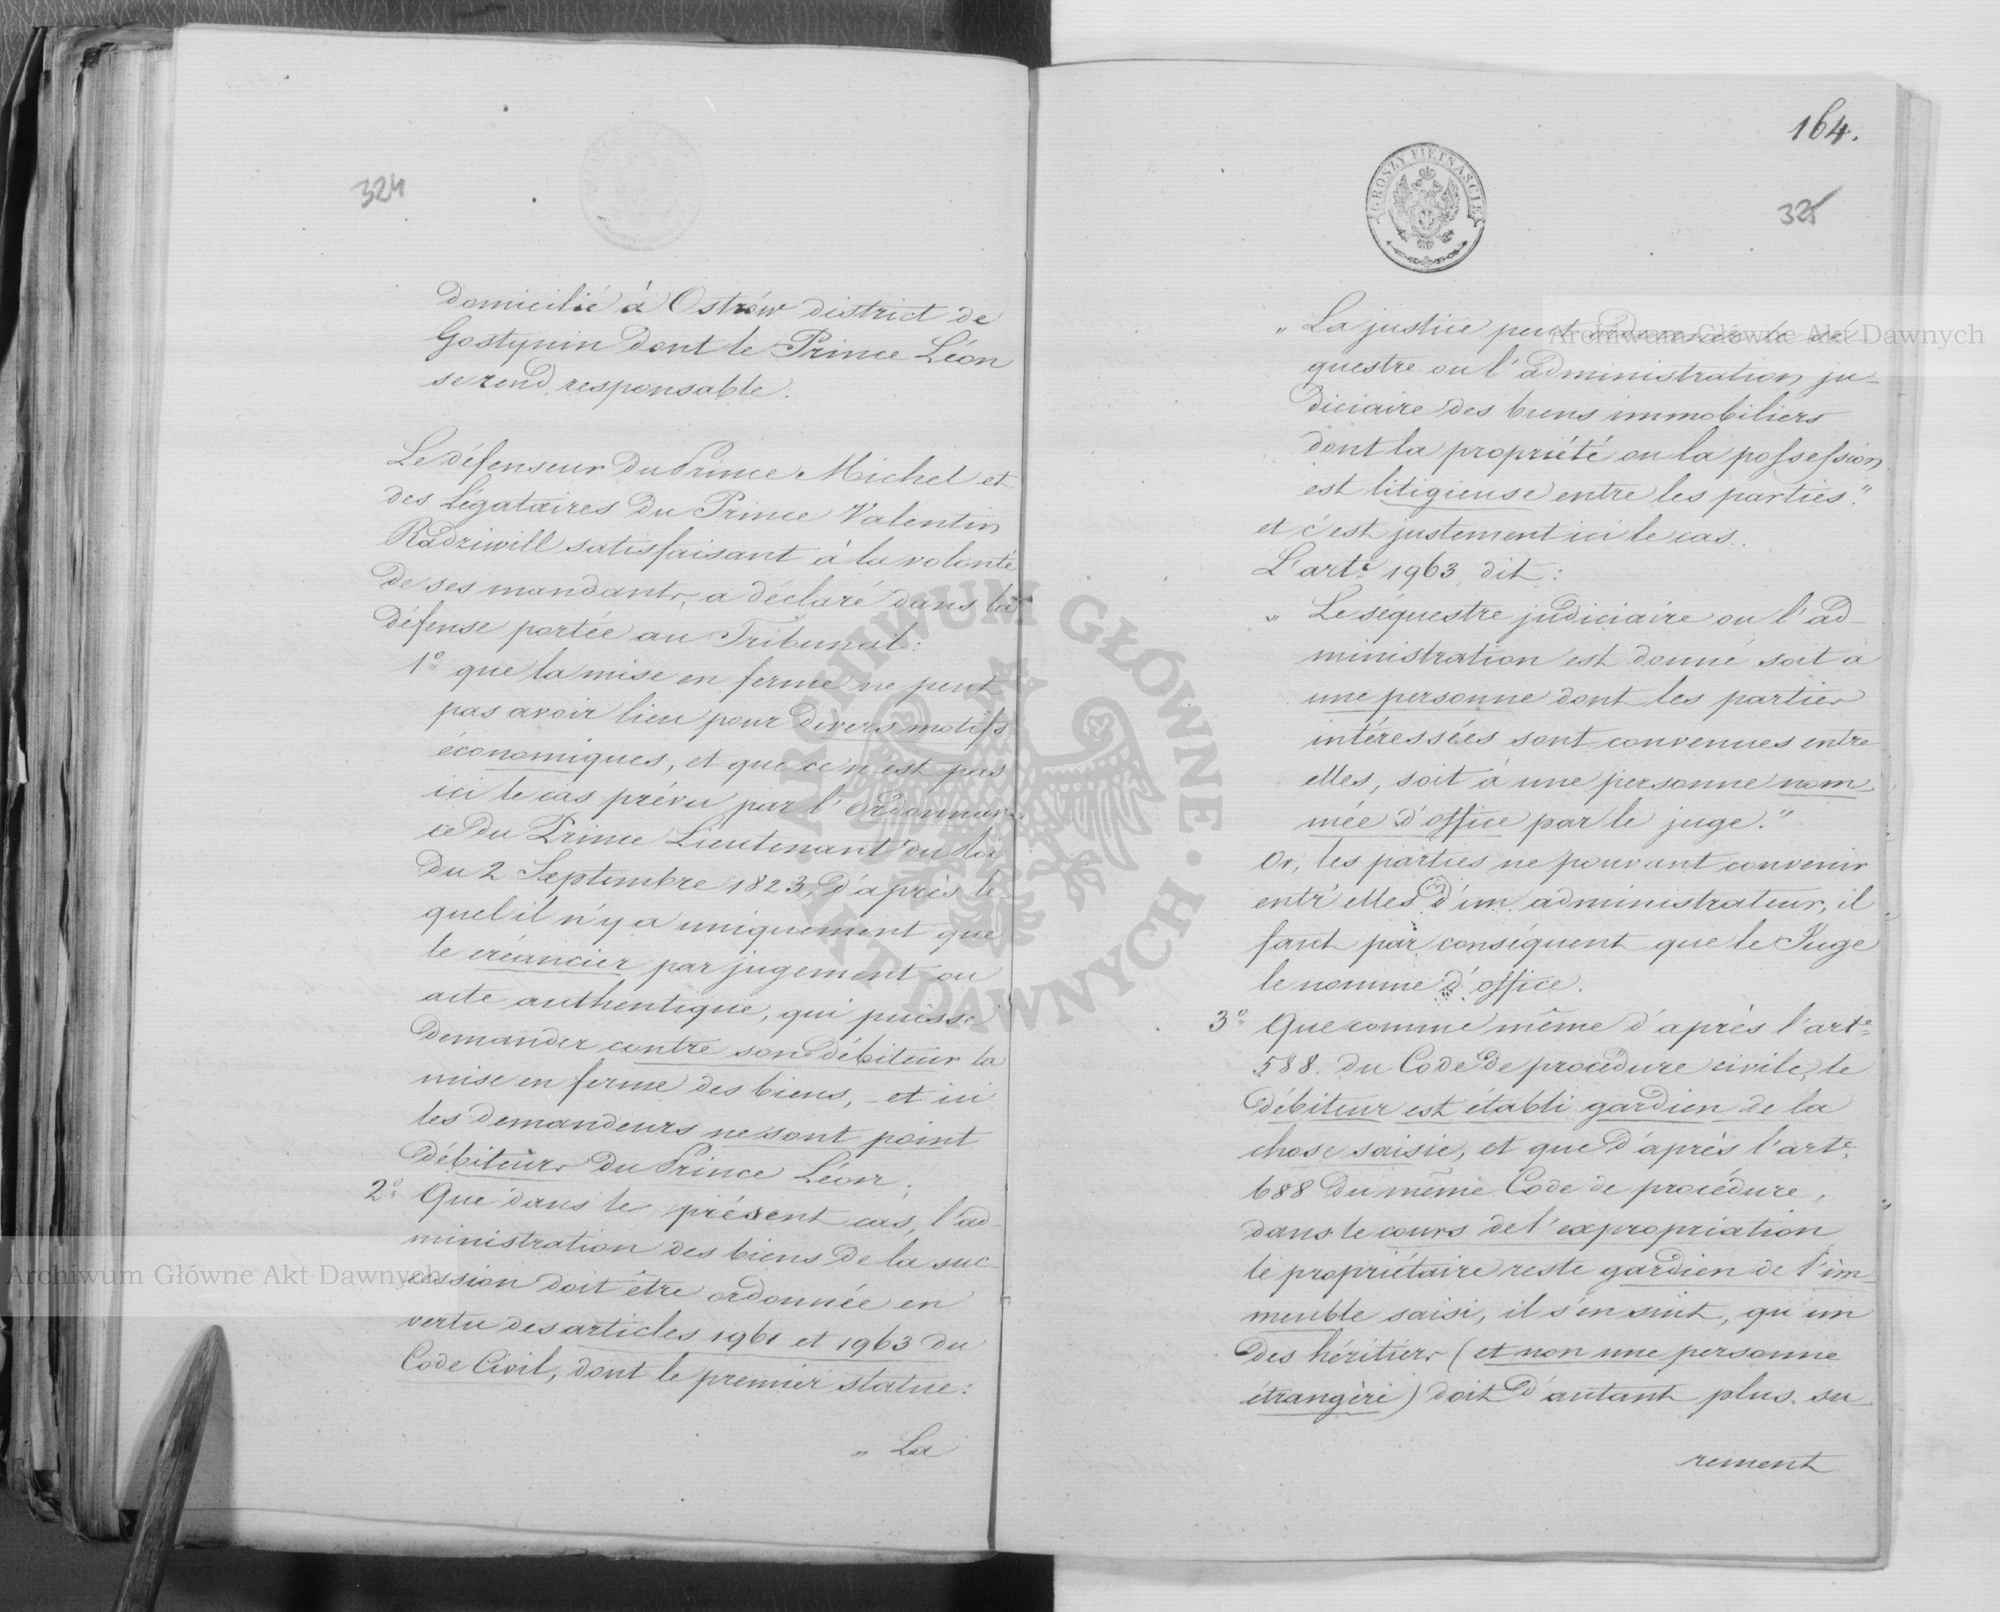 324
domicilié à Ostrów district de
Gostynin dont le Prince Léon
se rend responsable.
Le défenseur du Prince Michel et
des Légataires du Prince Valentin
Radziwill satisfaisant à la volonté
de ses mandants, a déclaré dans la
défense portée au Tribunal:
1º que la mise en ferme ne peut
pas avoir lieu pour divers motifs
économiques, et que ce n'est pas
ici le cas prévu par l'ordonnan-
ce du Prince Lieutenant du Roi
du 2 Septembre 1823, d'après le-
quel il n'y a uniquement que
le créancier par jugement ou
acte authentique, qui puisse
demander contre son débiteur la
mise en ferme des biens, - et ici
les demandeurs ne sont point
débiteurs du Prince Léon;
2º Que dans le présent cas, l'ad-
ministration des biens de la suc-
cession doit être ordonnée en
vertu des articles 1961 et 1963 du
Code Civil, dont le premier statue:
„ La
164.
325
GROSZY PIETNASCIE
„ La justice peut ordonner le sé-
questre ou l'administration ju-
diciaire des biens immobiliers
dont la propriété ou la possession
est litigieuse entre les parties."
et c'est justement ici le cas.
L'arte 1963 dit:
„ Le séquestre judiciaire ou l'ad-
ministration est donné soit à
une personne dont les parties
intéressées sont convenues entre
elles, soit à une personne nom-
mée d'office par le juge."
Or, les parties ne pouvant convenir
entr'elles d'un administrateur, il
faut par conséquent que le Juge
le nomme d'office.
3º Que comme même d'après l'arte
588. du Code de procédure civile, le
débiteur est établi gardien de la
chose saisie, et que d'après l'arte
688 du même Code de procédure,
dans le cours de l'expropriation
le propriétaire reste gardien de l'im-
meuble saisi, il s'en suit, qu'un
des héritiers (et non une personne
étrangère) doit d'autant plus su-
rement
Archiwum Główne Akt Dawnych
Archiwum Główne Akt Dawnych
ARCHIWUM GŁÓWNE · AKT DAWNYCH ·